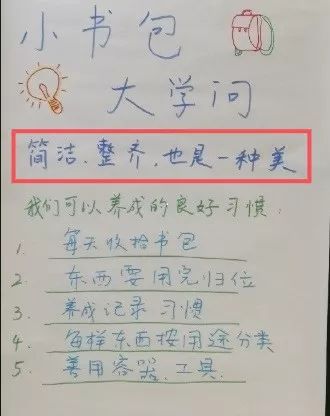 小书包
大学问
简洁、整齐,也是一种美
我们可以养成的良好习惯:
1. 每天收拾书包
2. 东西要用完归位
3. 养成记录习惯
4. 每样东西按用途分类
5. 善用容器、工具.